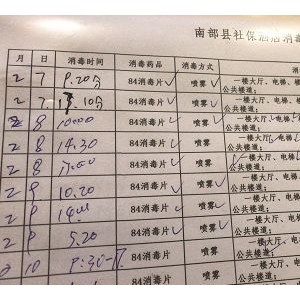 南部县社保酒店消毒
月 日 消毒时间 消毒药品 消毒方式 消
2 7 9.20分 84消毒片 喷雾 一楼大厅、电梯、
公共楼道;
2 7. 10分 84消毒片 喷雾 一楼大厅、电梯、
公共楼道;
2 8 10:00 84消毒片 喷雾 一楼大厅、电梯、
公共楼道;
2 8 14.30 84消毒片 喷雾 一楼大厅、电梯、
公共楼道;
2 8 84消毒片 喷雾 一楼大厅、电梯、
公共楼道;
2 9 10.20 84消毒片 喷雾 一楼大厅、电梯、
公共楼道;
2 9 84消毒片 喷雾 一楼大厅、电梯、
公共楼道;
2 9 5.20 84消毒片 喷雾 一楼大厅、电梯、
公共楼道;
2 10 9:30 84消毒片 喷雾 一楼大厅、电梯、
公共楼道;